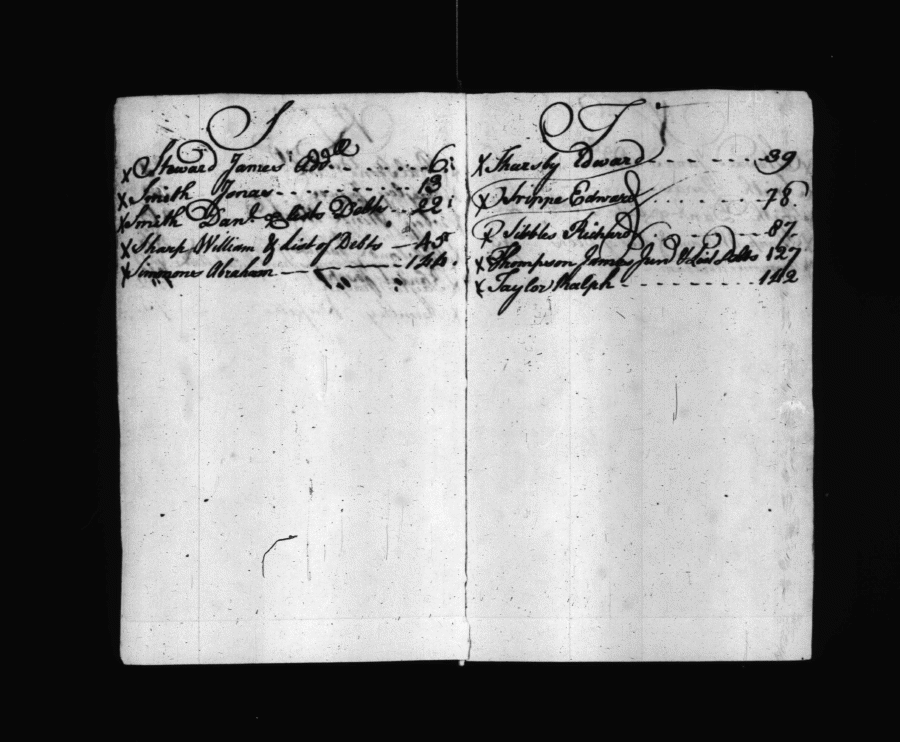 S
x Steward James Add.ll 6
x Smith Jonas 13
x Smith Danl & Lists Debts 22
x Sharp William & List of Debts 45
x Simmons Abraham 144
T
x Tharsby Edward 39
x Trippe Edward 78
P Tibbles Richard 87
x Thompson James Junr & List Debts 127
x Taylor Ralph 142